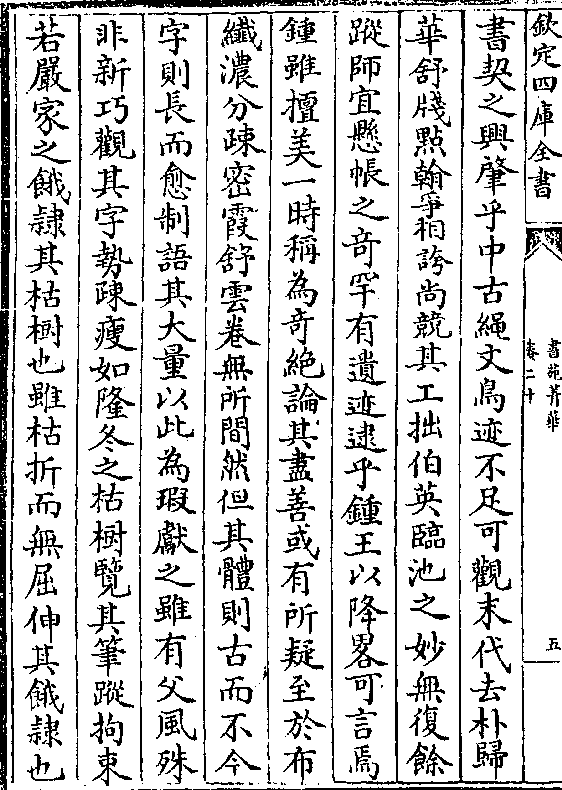 欽定四庫全書
書苑菁華
卷二十
五
書契之興肇乎中古繩文鳥迹不足可觀末代去朴歸
華舒牋點翰爭相誇尚競其工拙伯英臨池之妙無復餘
蹤師宜懸帳之竒罕有遺迹逮乎鍾王以降畧可言焉
鍾雖擅美一時稱為竒絶論其盡善或有所疑至於布
纎濃分疎密霞舒雲卷無所間然但其體則古而不今
字則長而愈制語其大量以此為瑕獻之雖有父風殊
非新巧觀其字勢疎瘦如隆冬之枯樹覽其筆蹤拘束
若嚴家之餓隷其枯樹也雖枯折而無屈伸其餓隷也